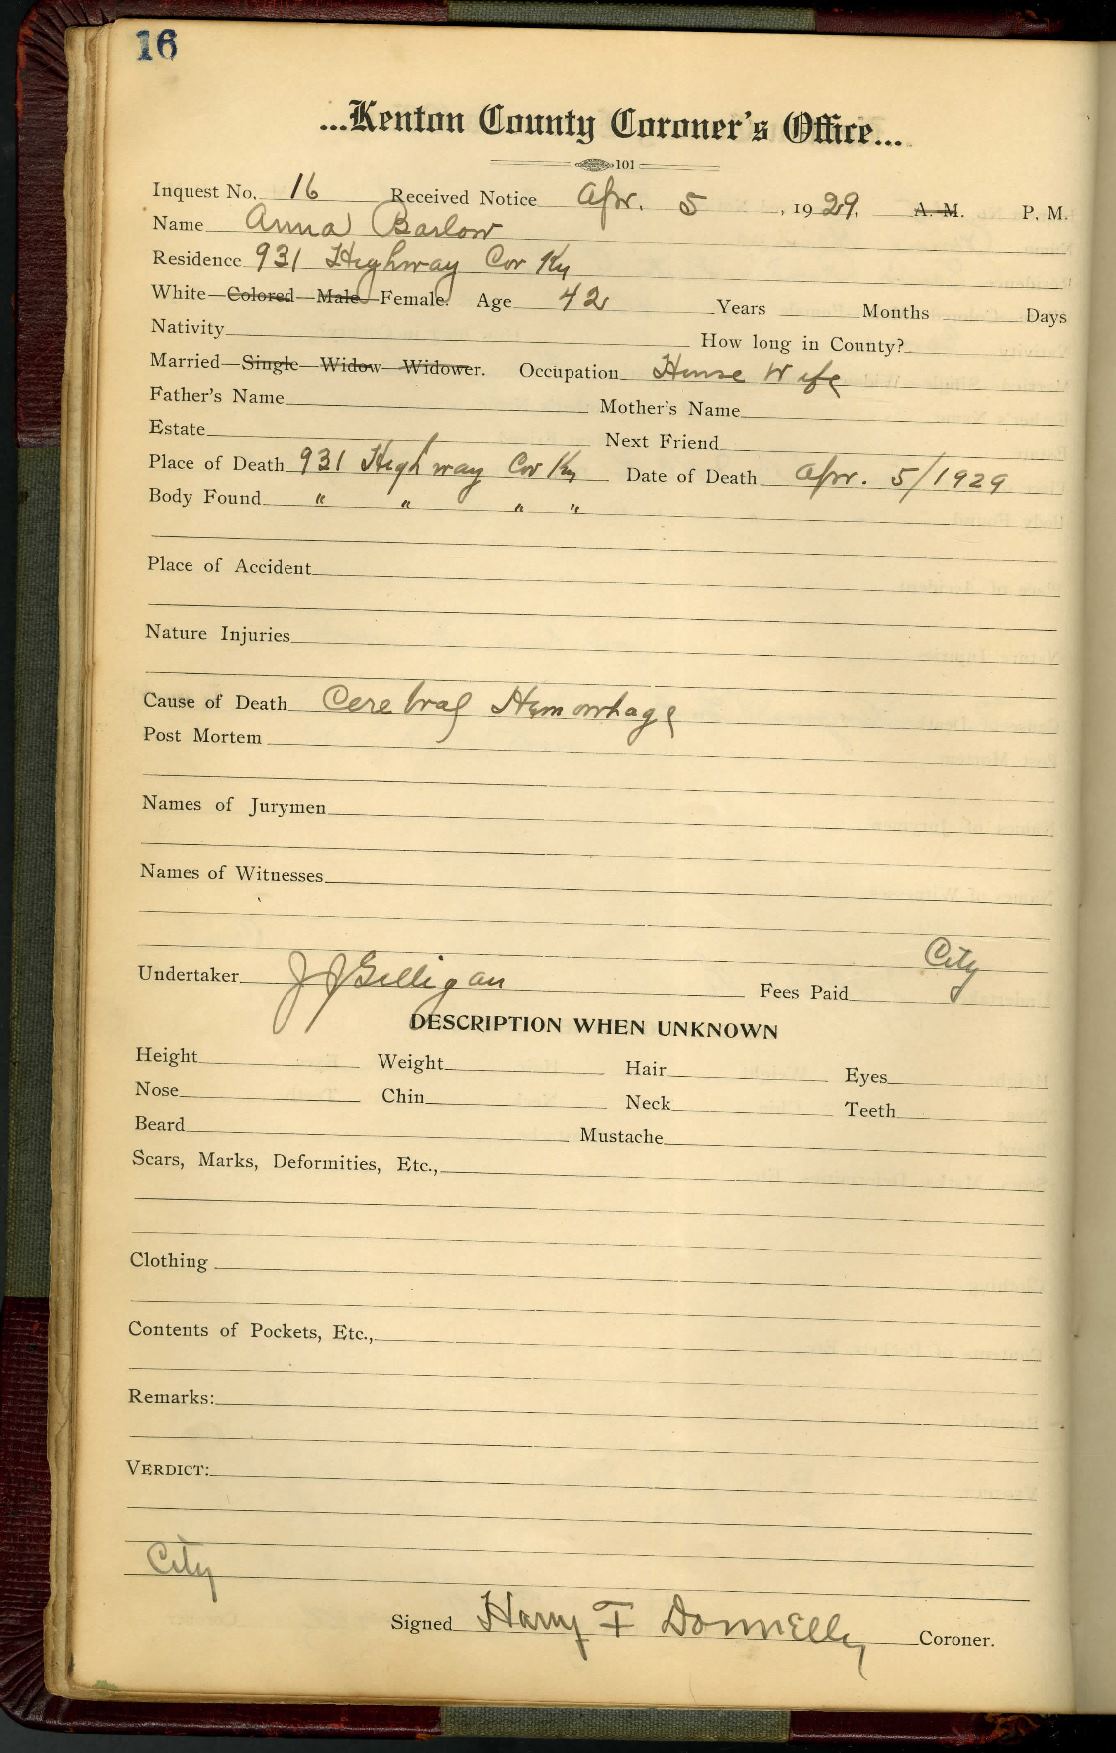 16
...Kenton County Coroner's Office...
101
Inquest No. 16 Received Notice Apr. 5, 1929. A. M. P. M.
Name Anna Barlow
Residence 931 Highway Cov Ky
White—Colored—Male—Female. Age 42 Years Months Days
Nativity How long in County?
Married—Single—Widow—Widower. Occupation House Wife
Father's Name Mother's Name
Estate Next Friend
Place of Death 931 Highway Cov Ky Date of Death Apr. 5/1929
Body Found " " " "
Place of Accident
Nature Injuries
Cause of Death Cerebral Hemorrhage
Post Mortem
Names of Jurymen
Names of Witnesses
Undertaker J J Gilligan Fees Paid City
DESCRIPTION WHEN UNKNOWN
Height Weight Hair Eyes
Nose Chin Neck Teeth
Beard Mustache
Scars, Marks, Deformities, Etc.,
Clothing
Contents of Pockets, Etc.,
Remarks:
VERDICT:
City
Signed Harry F Donnelly Coroner.